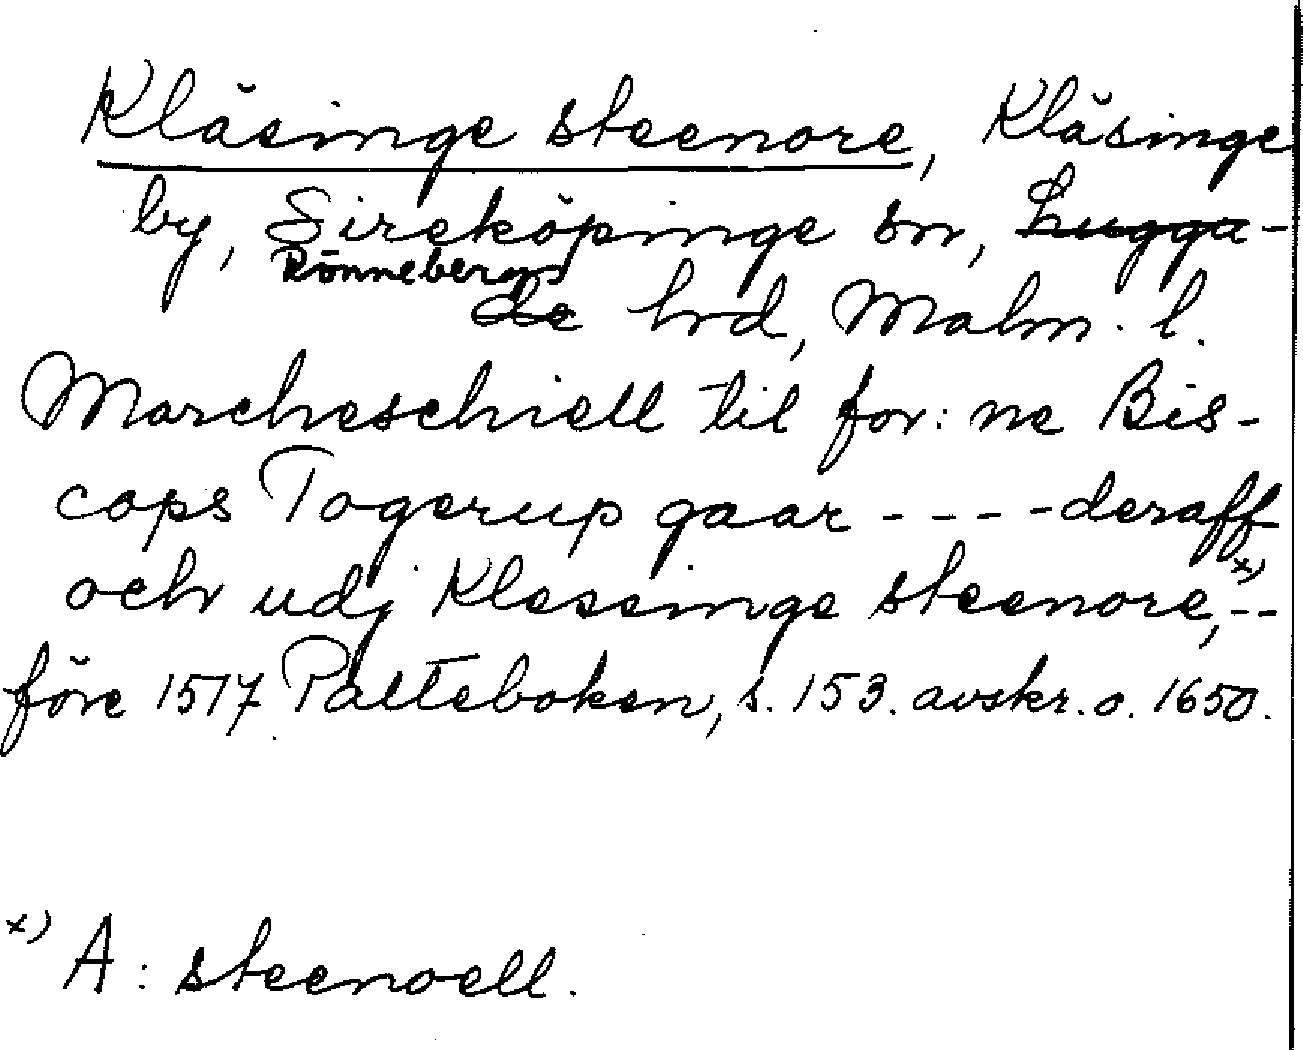 Kläsinge steenore, Kläsinge
by, Sireköpinge sn, Lugga-
Rönnebergs
de hrd, Malm. l.
Marcheschiell til for: ne Bis-
cops Togerup gaar - - - - deraff
och udj Klessinge steenore,x) --
före 1517 Palteboken, s. 153. avskr. o. 1650.
x) A: steenoell.